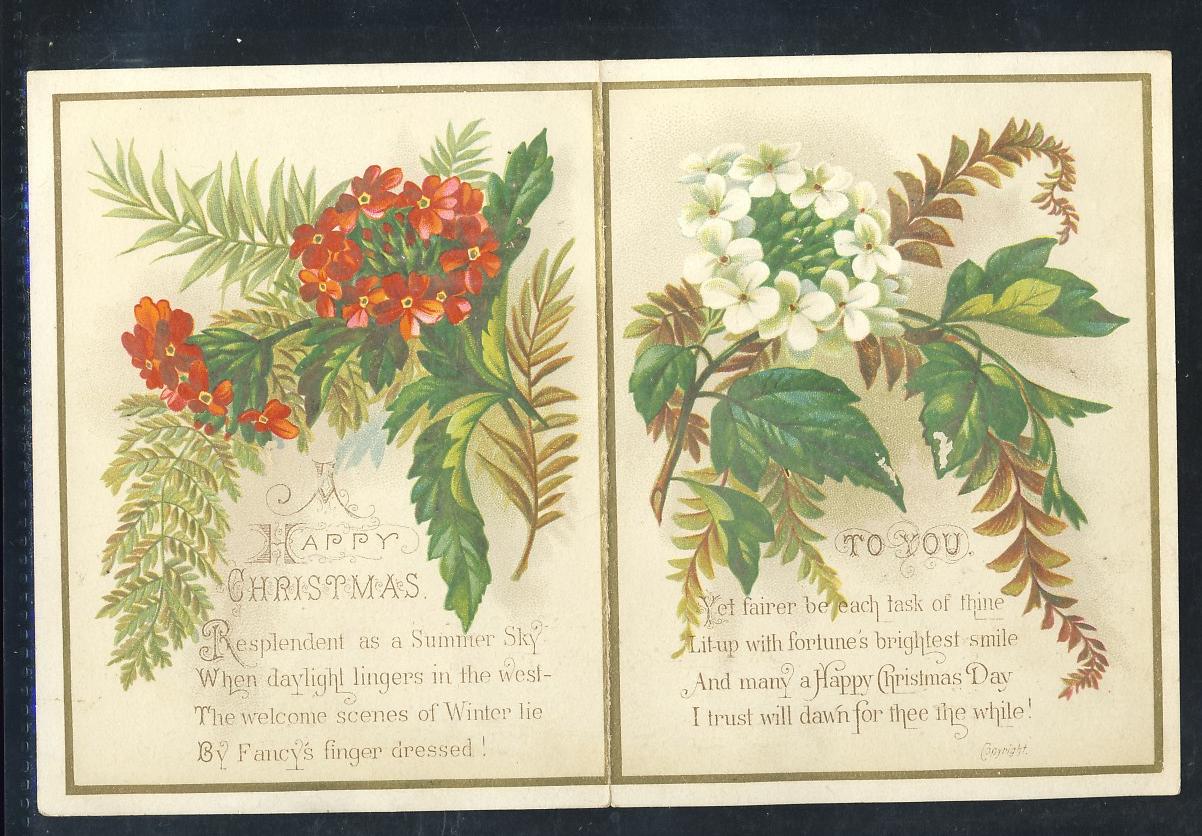 A
HAPPY
CHRISTMAS.
Resplendent as a Summer Sky
When daylight lingers in the west-
The welcome scenes of Winter lie
By Fancy's finger dressed!
TO YOU.
Yet fairer be each task of thine
Lit-up with fortune's brightest smile
And many a Happy Christmas Day
I trust will dawn for thee the while!
Copyright.